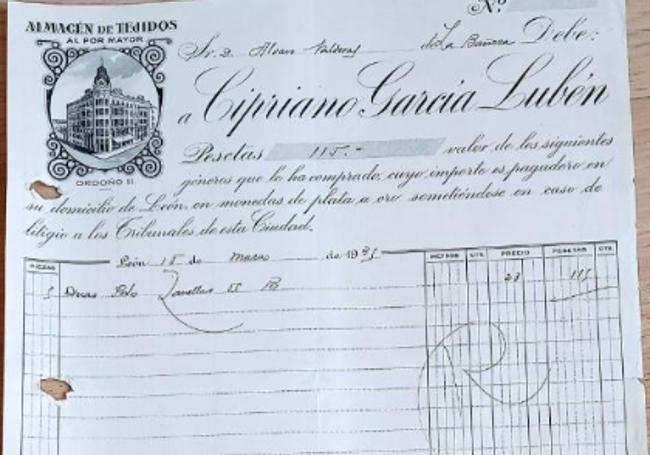 Nº
ALMACÉN DE TEJIDOS
AL POR MAYOR
ORDOÑO II.
Sr. D. Alvaro Valderas de La Bañeza Debe:
a Cipriano García Lubén
Pesetas 115.- valor de los siguientes
géneros que le ha comprado, cuyo importe es pagadero en
su domicilio de León, en monedas de plata u oro sometiéndose en caso de
litigio a los Tribunales de esta Ciudad.
León 15 de Marzo de 1935
PIEZAS METROS CTS. PRECIO PESETAS CTS.
5 Docas 23 115